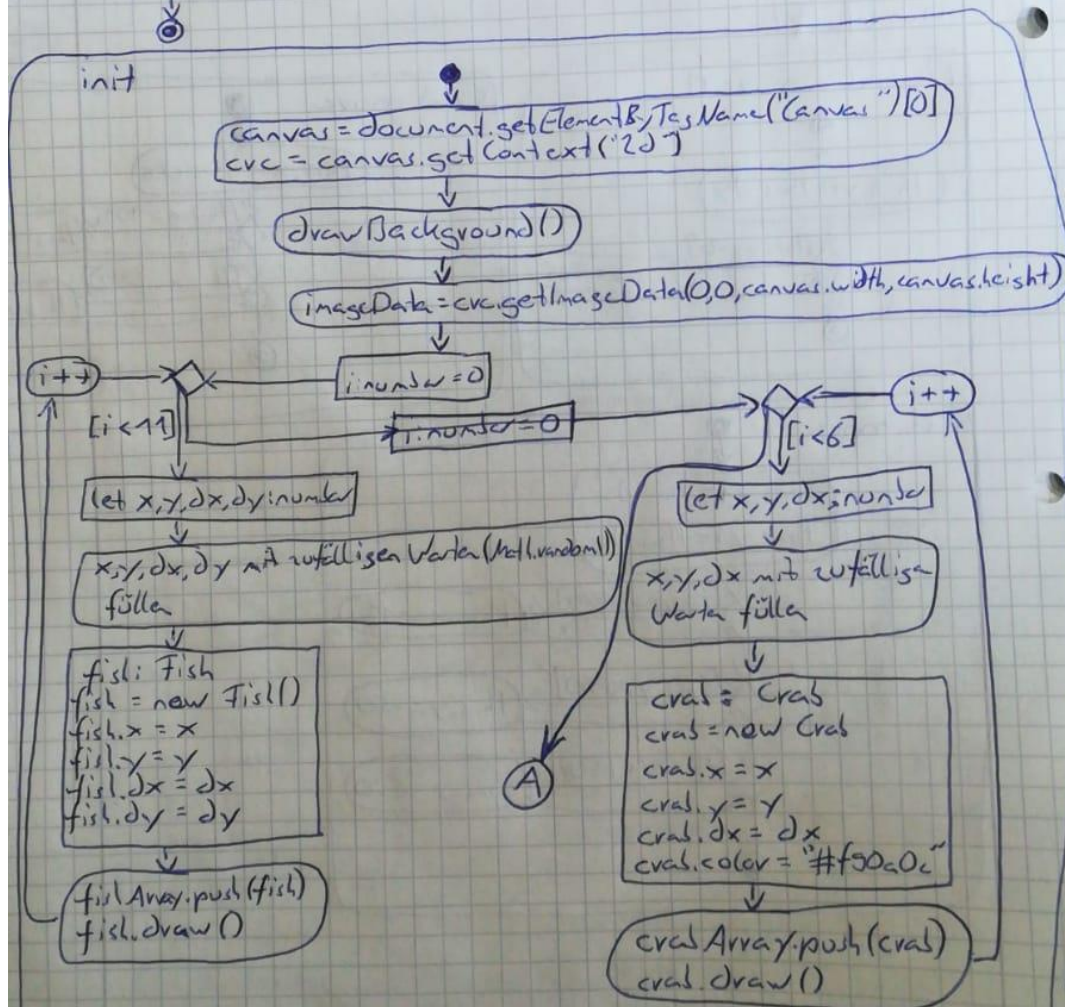 init
canvas = document.getElementByTagName("Canvas")[0]
crc = canvas.getContext("2d")
drawBackground()
imageData = crc.getImageData(0,0,canvas.width,canvas.height)
i++
i:number = 0
[i<11]
i:number = 0
i++
[i<6]
let x,y,dx,dy:number
x,y,dx,dy mit zufälligen Werten (Math.random())
füllen
fish: Fish
fish = new Fish()
fish.x = x
fish.y = y
fish.dx = dx
fish.dy = dy
fishArray.push(fish)
fish.draw()
let x,y,dx:number
x,y,dx mit zufälligen
Werten füllen
A
crab: Crab
crab = new Crab
crab.x = x
crab.y = y
crab.dx = dx
crab.color = "#f90a0c"
crabArray.push(crab)
crab.draw()